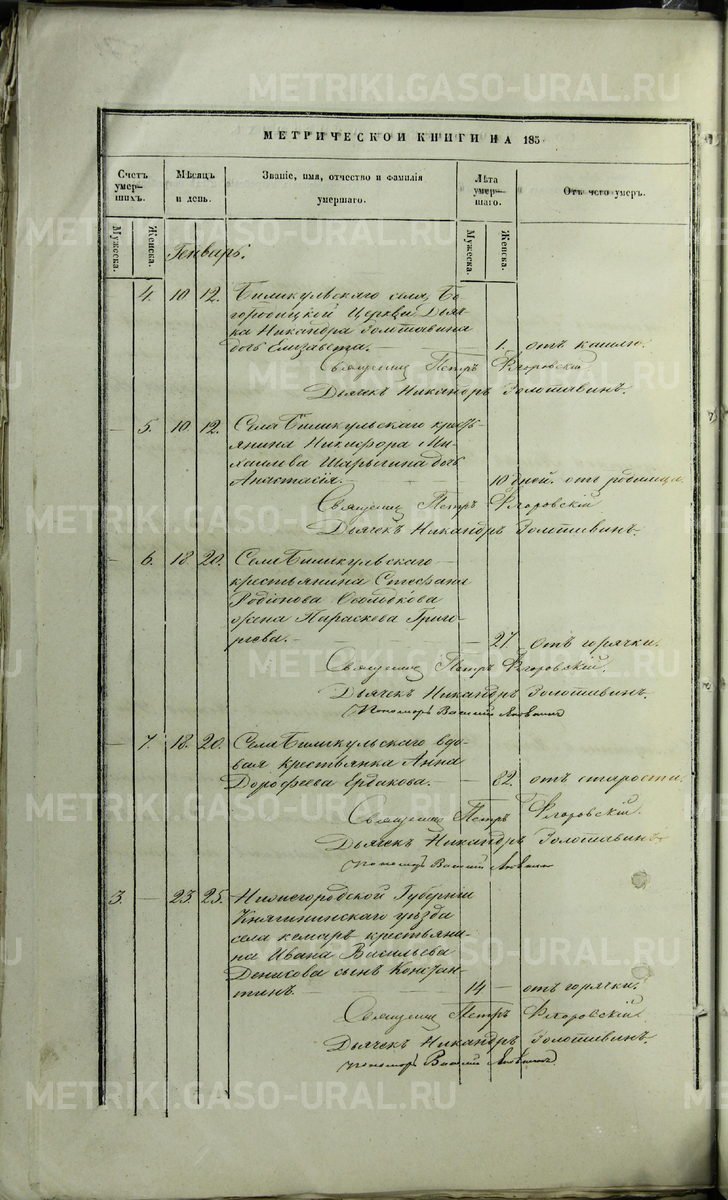 METRIKI.GASO-URAL.RU
МЕТРИЧЕСКОЙ КНИГИ НА 185
Счетъ умершихъ.
Мужеска.
Женска.
Мѣсяцъ и день.
Званіе, имя, отчество и фамилія умершаго.
Лѣта умершаго.
Мужеска.
Женска.
Отъ чего умеръ.
Генварь.
4. 10 12. Биликульскаго села, Бо-
городицкой Церкви Дьяч-
ка Никандра Золотавина
дочь Елизавета. — 1. отъ кашлю.
Священникъ Петръ Флоровскій
Дьячекъ Никандръ Золотавинъ.
— 5. 10 12. Села Биликульскаго крестъ-
янина Никифора Ми-
хаилова Шарыгина дочь
Анастасія. — 10 дней. отъ родимца.
Священникъ Петръ Флоровскій
Дьячекъ Никандръ Золотавинъ.
— 6. 18 20. Села Биликульскаго
крестьянина Стефана
Родіонова
жена Параскева Григо-
рьева. — 27. отъ горячки.
Священникъ Петръ Флоровскій.
Дьячекъ Никандръ Золотавинъ.
Пономарь Василій
— 7. 18. 20. Села Биликульскаго вдо-
вая крестьянка Анна
Дорофеева Ербакова. — 82. отъ старости.
Священникъ Петръ Флоровскій.
Дьячекъ Никандръ Золотавинъ
Пономарь Василій
3. — 23 25. Нижегородской Губерніи
Княгининскаго уѣзда
села Кемаръ крестьяни-
на Ивана Васильева
Денисова сынъ Констан-
тинъ. — 14 — отъ горячки.
Священникъ Петръ Флоровскій
Дьячекъ Никандръ Золотавинъ.
Пономарь Василій